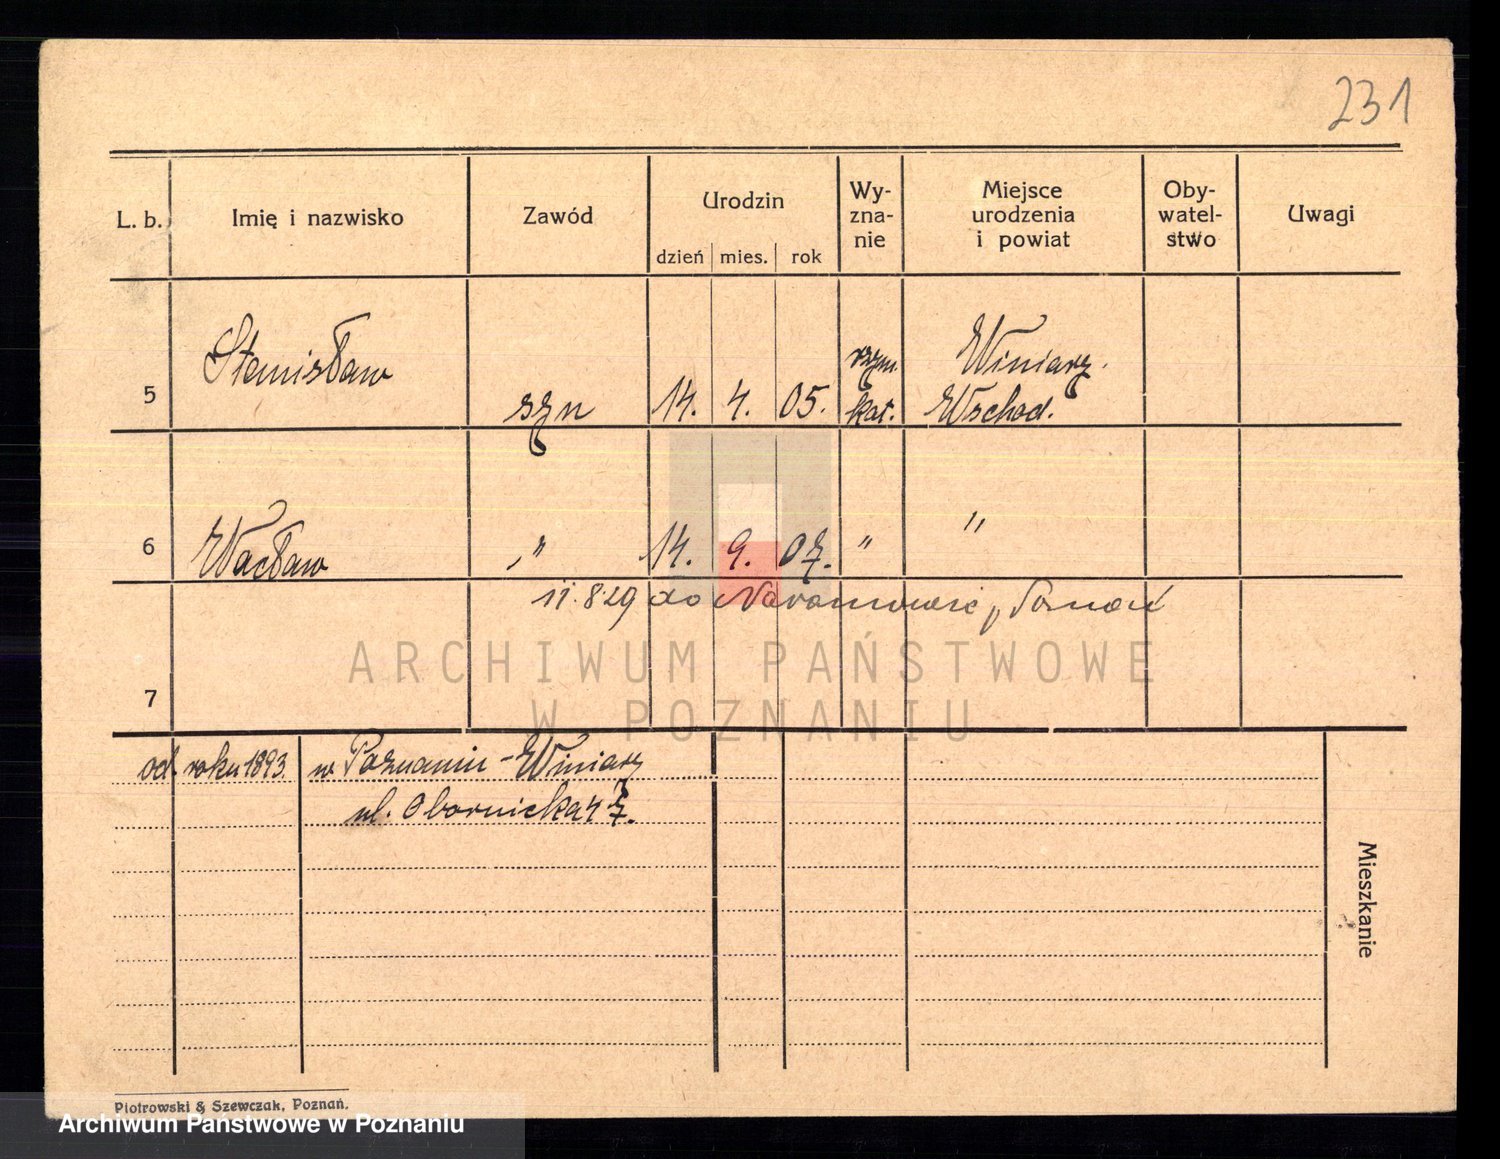 231
L. b.
Imię i nazwisko
Zawód
Urodzin
dzień mies. rok
Wy-
zna-
nie
Miejsce
urodzenia
i powiat
Oby-
watel-
stwo
Uwagi
Stanisław rzym. Winiary
5 syn 14. 4. 05. kat. Wschod.
6 Wacław " 14. 9. 07. " "
11.8.29 do Naramowic p. Poznań
ARCHIWUM PAŃSTWOWE
7
W POZNANIU
od roku 1893 w Poznaniu - Winiary
ul. Obornicka 47.
Mieszkanie
Piotrowski & Szewczak, Poznań.
Archiwum Państwowe w Poznaniu